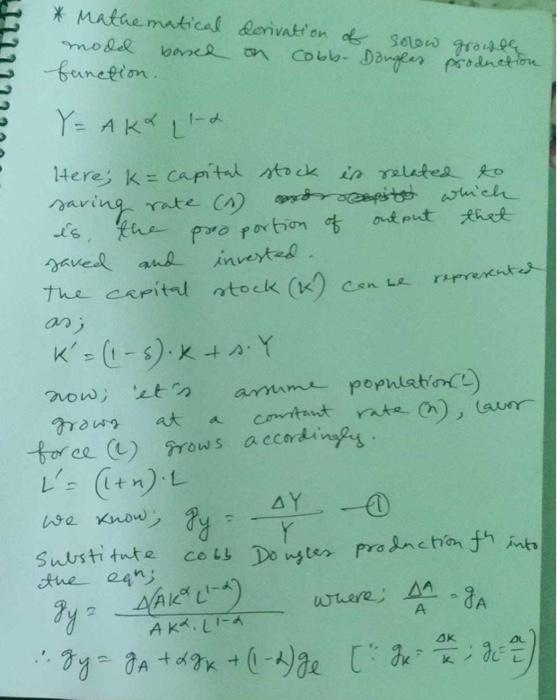 * Mathematical derivation of solow growth
model based on Cobb-Douglas production
function.
Y = A K^α L^1-α
Here; K = capital stock is related to
saving rate (s) which
is, the proportion of output that
saved and invested.
The capital stock (K') can be represented
as;
K' = (1-δ)·K + s·Y
now; let's assume population(L)
grows at a constant rate (n), labor
force (L) grows accordingly.
L' = (1+n)·L
we know; gy = ΔY/Y — ①
Substitute cobb Douglas production fn into
the eqn;
gy = Δ(AK^α L^1-α) / AK^α·L^1-α where; ΔA/A = gA
∴ gy = gA + αgK + (1-α)gl [∵ gK = ΔK/K ; gL = ΔL/L]